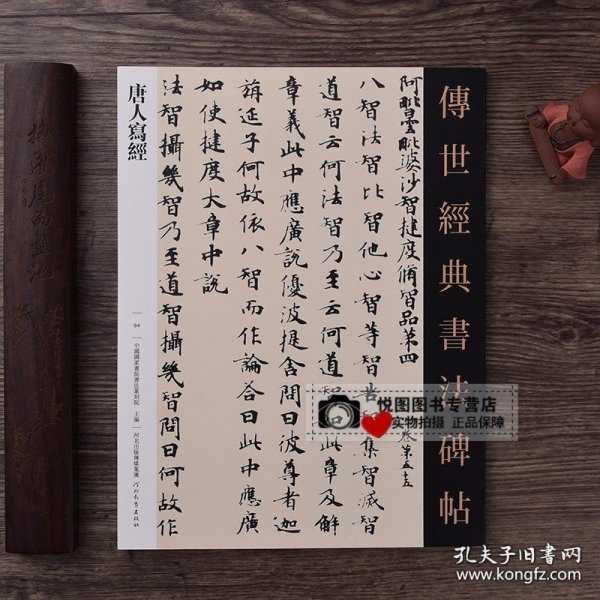 傳世經典書法碑帖
阿毗曇毗婆沙智揵度脩智品第四
卷第五十五
八智法智比智他心智等智苦智集智滅智
道智云何法智乃至云何道智如此章及解
章義此中應廣說優波提舍問曰彼尊者迦
旃延子何故依八智而作論答曰此中應廣
如使揵度大章中說
法智攝幾智乃至道智攝幾智問曰何故作
唐人寫經
94
中國國家畫院書法篆刻院 主編
河北出版傳媒集團
河北教育出版社
悦图图书专营店
实物拍摄 正品保障
孔夫子旧书网
www.kongfz.com